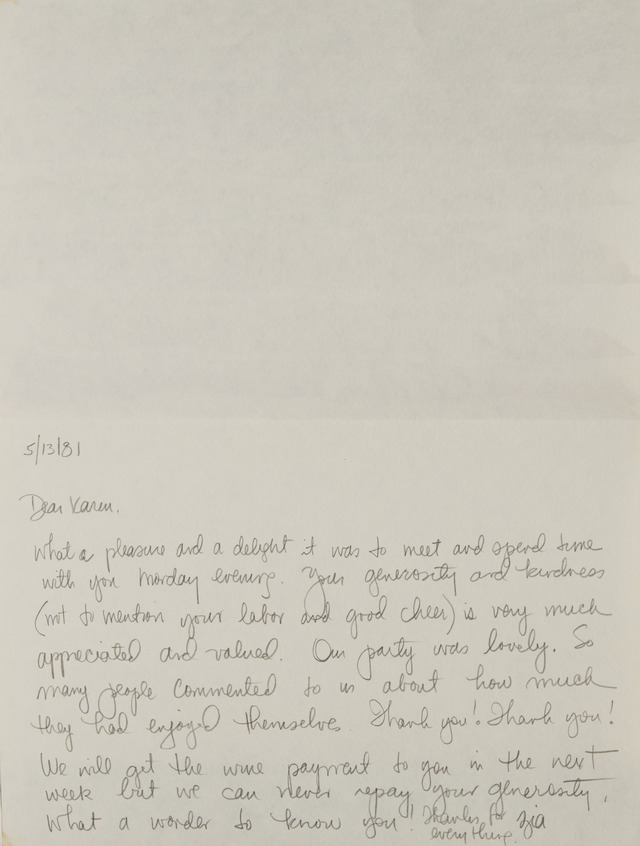 5/13/81
Dear Karen,
What a pleasure and a delight it was to meet and spend time
with you Monday evening. Your generosity and kindness
(not to mention your labor and good cheer) is very much
appreciated and valued. Our party was lovely. So
many people commented to us about how much
they had enjoyed themselves. Thank you! Thank you!
We will get the wine payment to you in the next
week but we can never repay your generosity.
What a wonder to know you! Thanks for
everything. Zia